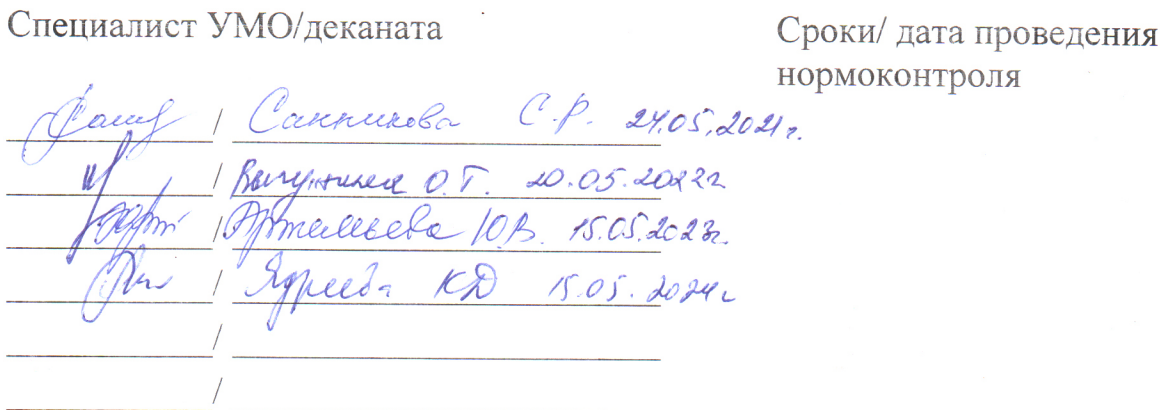 Специалист УМО/деканата
Сроки/ дата проведения
нормоконтроля
/ Санникова С.Р. 24.05.2021г.
/ О.Т. 20.05.2022г
/ Артемьева Ю.В. 15.05.2023г.
/ Ядреева КД 15.05.2024г
/
/